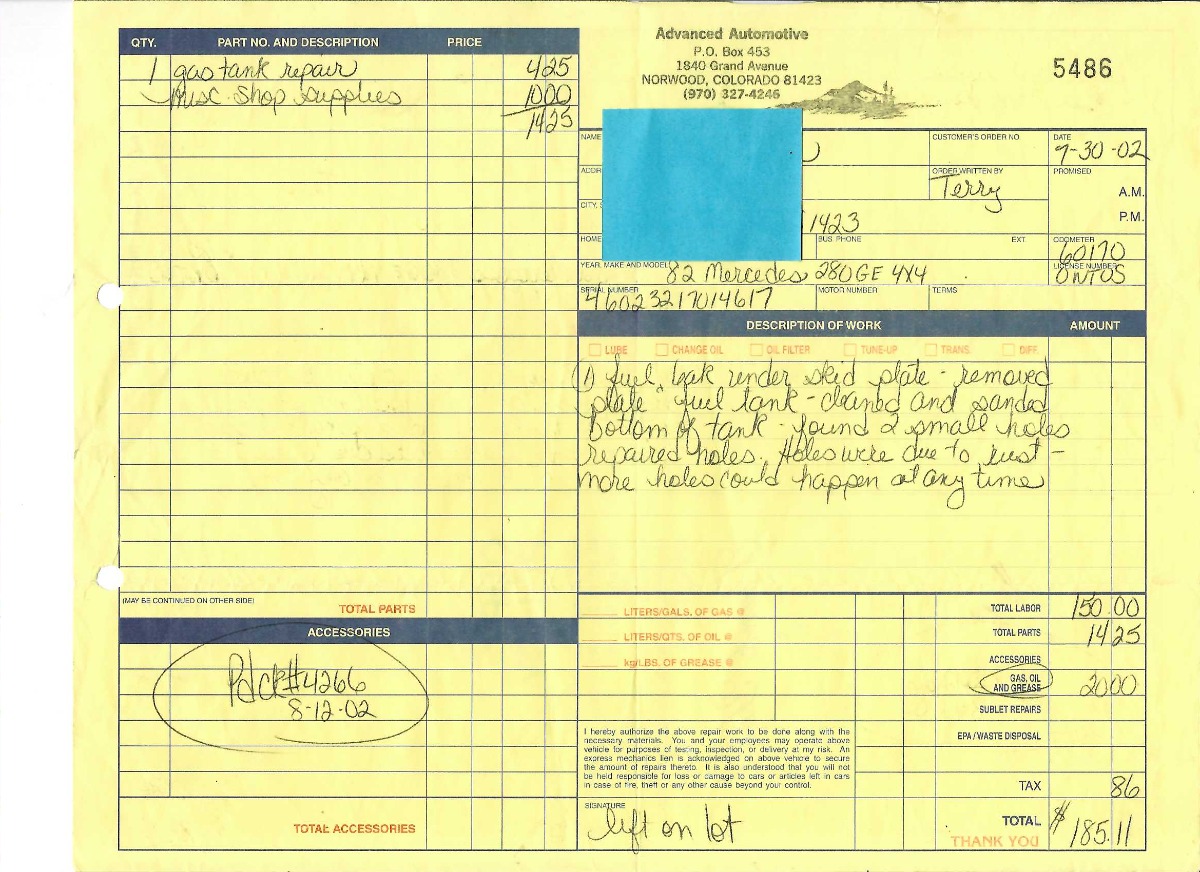 QTY. PART NO. AND DESCRIPTION PRICE
1 gas tank repair 425
misc. shop supplies 1000
1425
(MAY BE CONTINUED ON OTHER SIDE) TOTAL PARTS
ACCESSORIES
Pd ck#4266
8-12-02
TOTAL ACCESSORIES
Advanced Automotive
P.O. Box 453
1840 Grand Avenue
NORWOOD, COLORADO 81423
(970) 327-4246
5486
NAME CUSTOMER'S ORDER NO. DATE
7-30-02
ADDR ORDER WRITTEN BY PROMISED
Terry A.M.
P.M.
CITY, S
1423
HOME BUS. PHONE EXT. ODOMETER
60170
YEAR, MAKE AND MODEL 82 Mercedes 280GE 4X4 LICENSE NUMBER
SERIAL NUMBER MOTOR NUMBER TERMS
46023217014617
DESCRIPTION OF WORK AMOUNT
LUBE CHANGE OIL OIL FILTER TUNE-UP TRANS. DIFF.
1) fuel leak under skid plate - removed
plate fuel tank - cleaned and sanded
bottom of tank - found 2 small holes
repaired holes. Holes were due to rust -
more holes could happen at any time
LITERS/GALS. OF GAS @ TOTAL LABOR 150.00
LITERS/QTS. OF OIL @ TOTAL PARTS 1425
kg/LBS. OF GREASE @ ACCESSORIES
GAS, OIL
AND GREASE 2000
SUBLET REPAIRS
EPA / WASTE DISPOSAL
I hereby authorize the above repair work to be done along with the
necessary materials. You and your employees may operate above
vehicle for purposes of testing, inspection, or delivery at my risk. An
express mechanics lien is acknowledged on above vehicle to secure
the amount of repairs thereto. It is also understood that you will not
be held responsible for loss or damage to cars or articles left in cars
in case of fire, theft or any other cause beyond your control.
TAX 86
SIGNATURE
left on lot
TOTAL $185.11
THANK YOU